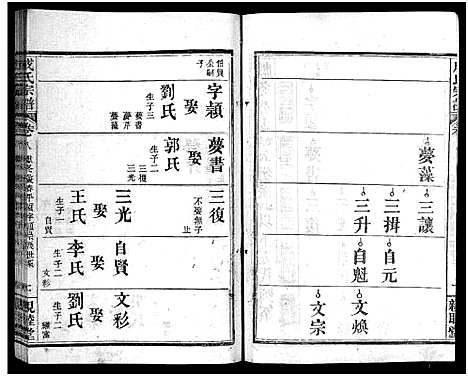 夢藻
三讓
三揖
三升
自元
自魁
文煥
文宗
成氏宗譜
卷八
親睦堂
字穎
娶
劉氏
生子三
夢書
夢芹
夢藻
夢書
娶
郭氏
生子二
三復
三光
三復
不娶無子
止
三光
娶
王氏
生子一
自賢
自賢
娶
李氏
生子二
文彩
文彩
娶
劉氏
生子二